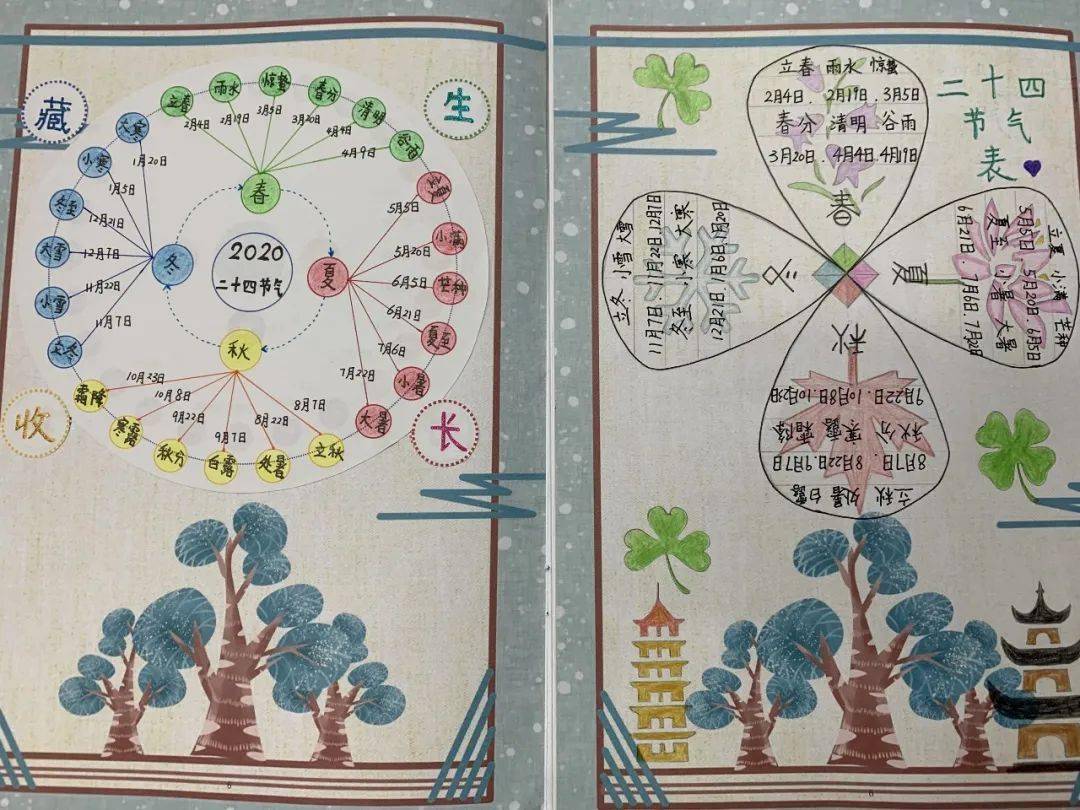 藏
生
收
长
2020
二十四节气
春
立春
2月4日
雨水
2月19日
惊蛰
3月5日
春分
3月20日
清明
4月4日
谷雨
4月9日
夏
立夏
5月5日
小满
5月20日
芒种
6月5日
夏至
6月21日
小暑
7月6日
大暑
7月22日
秋
立秋
8月7日
处暑
8月22日
白露
9月7日
秋分
9月22日
寒露
10月8日
霜降
10月23日
冬
立冬
11月7日
小雪
11月22日
大雪
12月7日
冬至
12月21日
小寒
1月5日
大寒
1月20日
6
二十四
节气
表
立春 雨水 惊蛰
2月4日. 2月19日. 3月5日
春分 清明 谷雨
3月20日. 4月4日. 4月19日
春
立夏 小满 芒种
5月5日. 5月20日. 6月5日
夏至 小暑 大暑
6月21日. 7月6日. 7月22日
夏
立秋 处暑 白露
8月7日. 8月22日. 9月7日
秋分 寒露 霜降
9月22日. 10月8日. 10月23日
秋
立冬 小雪 大雪
11月7日. 11月22日. 12月7日
冬至 小寒 大寒
12月21日. 1月6日. 1月20日
冬
6